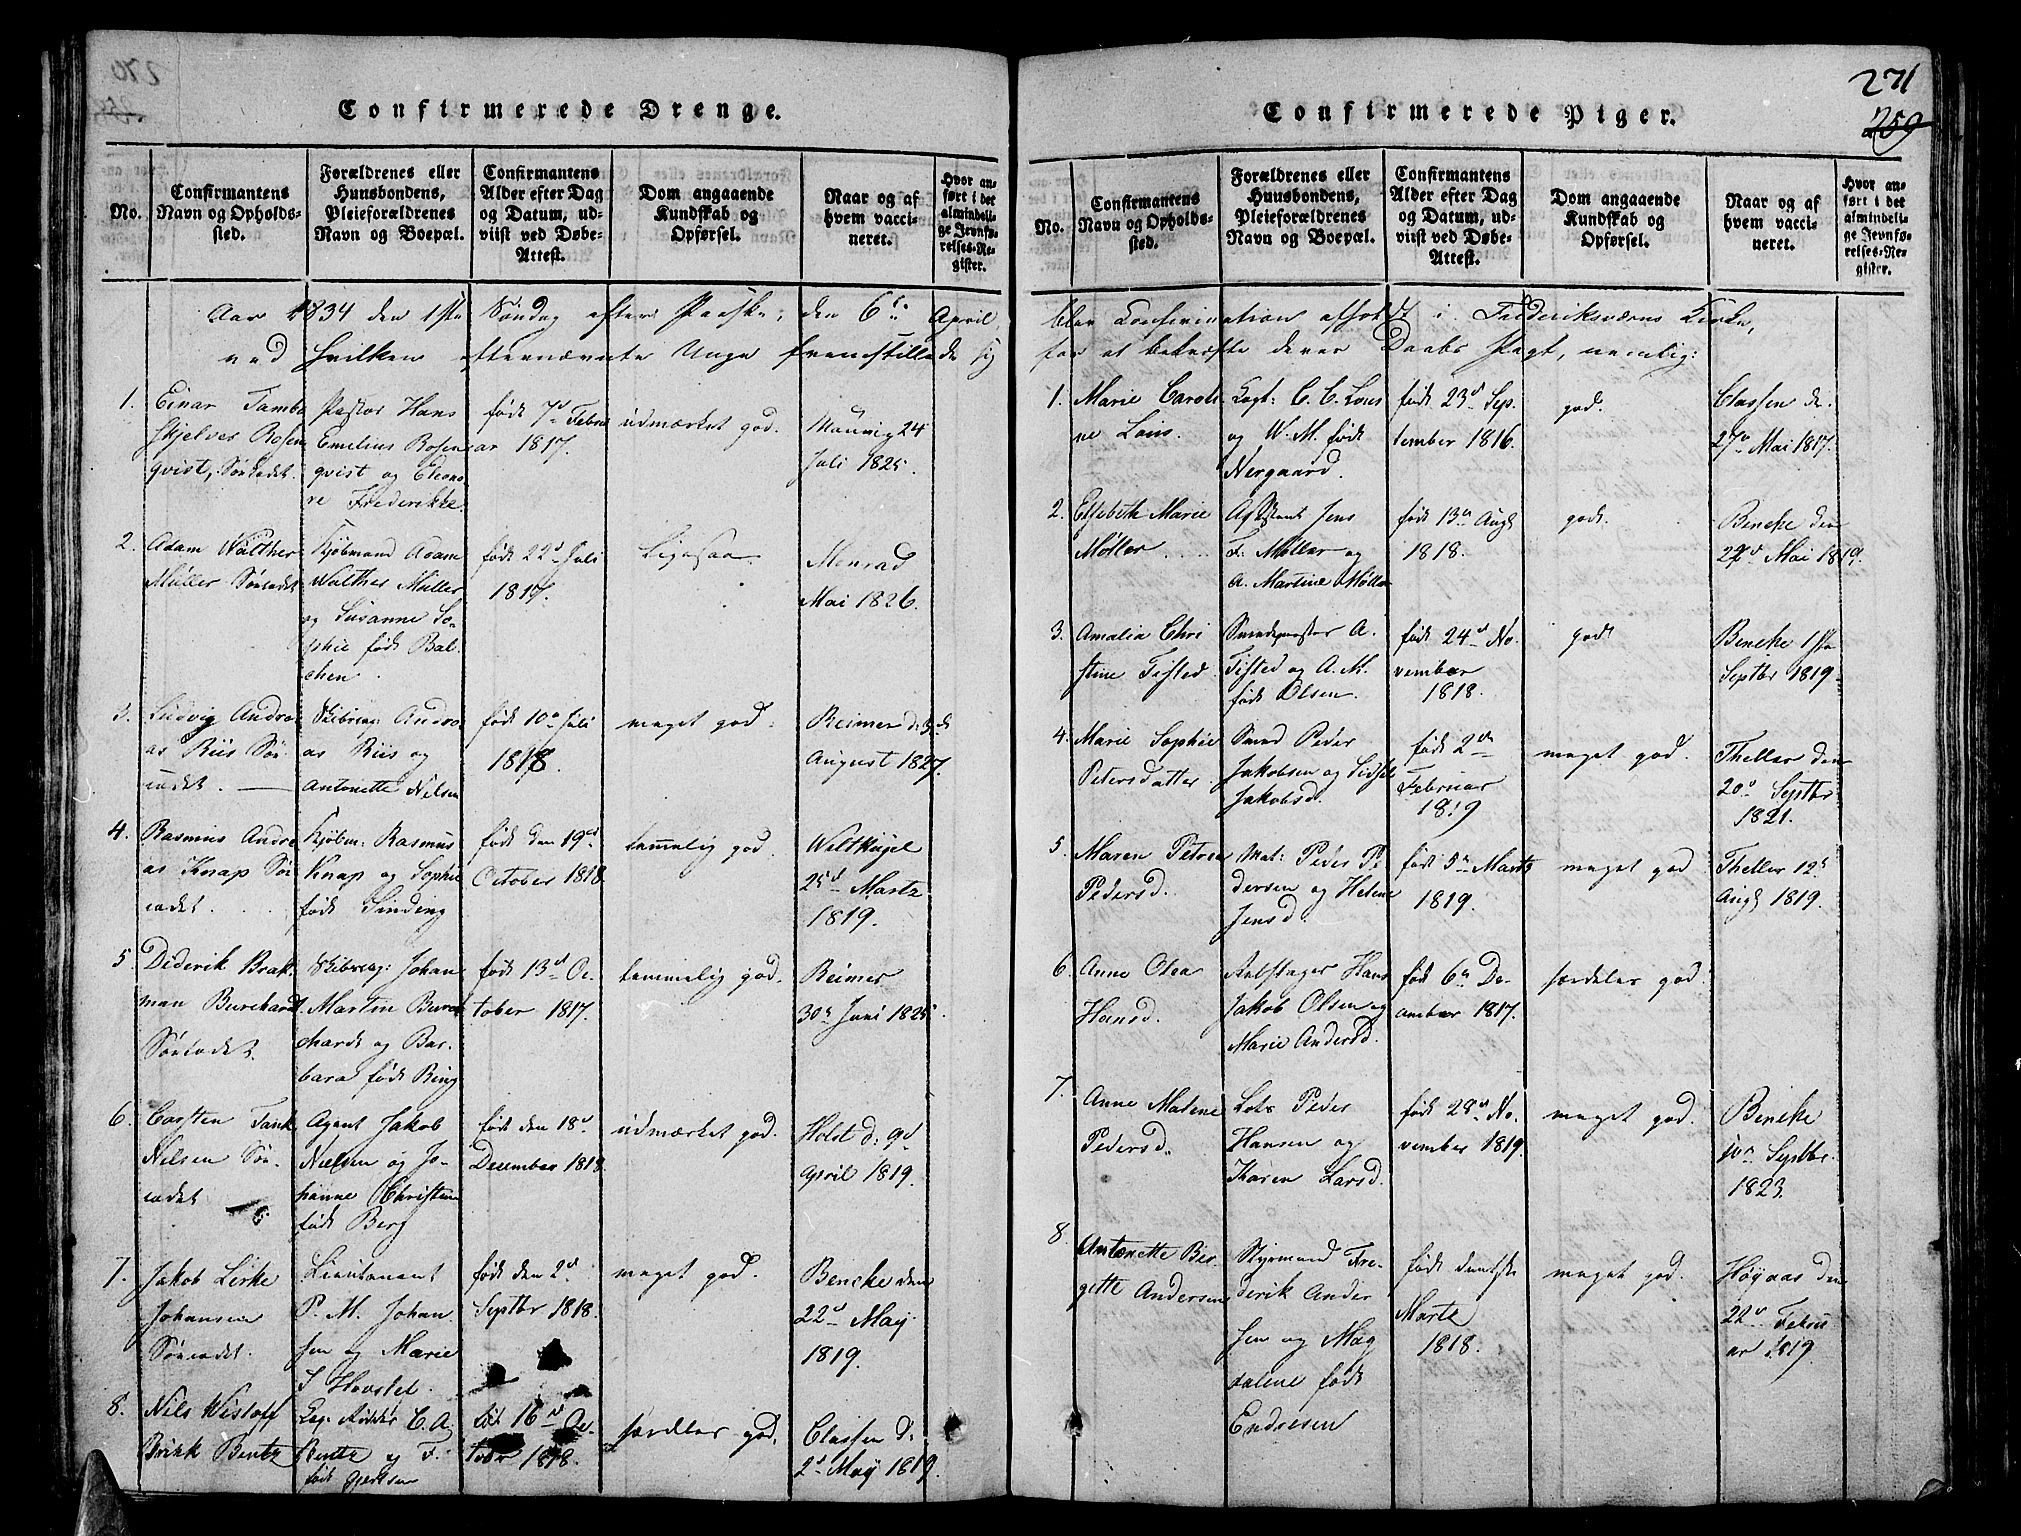 Confirmerede Drenge.
No.
Confirmantens
Navn og Opholds-
sted.
Forældrenes eller
Huusbondens,
Pleieforældrenes
Navn og Boepæl.
Confirmantens
Alder efter Dag
og Datum, ud-
viist ved Døbe-
Attest.
Dom angaaende
Kundskab og
Opførsel.
Naar og af
hvem vacci-
neret.
Hvor an-
ført i det
almindeli-
ge Jevnfø-
relses-Re-
gister.
Aar 1834 den 1ste Søndag efter Paaske, den 6te April,
ved hvilken efternævnte Unge fremstillede sig
1.
Einar Tamba
Skjelver Rosen
qvist, Søcadet
Pastor Hans
Emilius Rosen
qvist og Eleono
re Frederikke
født 7de Febru
ar 1817.
udmærket god.
24
Juli 1825.
2.
Adam Walther
Müller Søcadet
Kjøbmand Adam
Walther Müller
og Susanne So-
phie født Bal-
chen.
født 22de Juli
1817.
Ligesaa.
Menrad
Mai 1826.
3.
Ludvig Andre
as Riis Sø-
cadet.
Skibscap: Andre
as Riis og
Antonette Nielsen
født 10de Juli
1818.
meget god.
Reimer d: 3de
August 1827.
4.
Rasmus Andre
as Knap Sø
cadet.
Kjøbm: Rasmus
Knap og Sophie
født Sinding
født den 19de
October 1818
temmelig god.
Weltkugel
25de Martz
1819.
5.
Diderik Brak-
man Burchardt
Søcadet.
Skibscap: Johan
Martin Burch
chardt og Bar-
bara født Ring
født 13de Oc-
tober 1817.
temmelig god.
Reimer
30te Juni 1825
6.
Carsten Tank
Nilsen Sø-
cadet
Agent Jakob
Nielsen og Jo-
hanne Christine
født Berg
født den 18de
December 1818
udmærket god.
Holst d: 9de
April 1819.
7.
Jakob Lerke
Johansen
Søcadet.
Lieutenant
P. M. Johan
sen og Marie
S. Hovstel.
født den 2de
Septbr 1818.
meget god.
Beneke den
22de May
1819.
8.
Nils Wistoff
Brikk Bentz
Cap: Ridder C. A.
Bentz og F.
født Gjertsen
født 16de Oc-
tober 1818.
særdeles god.
Classen d:
2de May 1819.
271
259
Confirmerede Piger.
No.
Confirmantens
Navn og Opholds-
sted.
Forældrenes eller
Huusbondens,
Pleieforældrenes
Navn og Boepæl.
Confirmantens
Alder efter Dag
og Datum, ud-
viist ved Døbe-
Attest.
Dom angaaende
Kundskab og
Opførsel.
Naar og af
hvem vacci-
neret.
Hvor an-
ført i det
almindeli-
ge Jevnfø-
relses-Re-
gister.
blev Confirmation afholdt i Frederiksværns Kirke,
for at bekræfte deres Daabs Pagt, nemlig:
1.
Marie Caroli
ne Lous.
Capt: C. C. Lous
og W. M. født
Nergaard.
født 23de Sep-
tember 1816.
god.
Classen d:
27de Mai 1817.
2.
Elsebeth Marie
Møller
Assistent Jens
F. Møller og
A. Martine Møller
født 13de Augt
1818.
god.
Beneke den
29de Mai 1819.
3.
Amalia Chri
stine Tisted.
Smedemester A.
Tisted og A. M.
født Olsen.
født 24de No
vember
1818.
god
Beneke 1ste
Septbr 1819
4.
Marie Sophie
Petersdatter
Smed Peder
Jakobsen og Sidsel
Jakobsd.
født 2den
Februar
1819
meget god.
Theller den
20de Septbr
1821.
5.
Maren Petrea
Pedersd.
Mat: Peder Pe
dersen og Helene
Jensd.
født 5te Martz
1819.
meget god
Theller 12te
Augt 1819.
6.
Anne Olea
Hansd.
Hans
Jakob Olsen og
Marie Andersd.
født 6te De-
cember 1817.
særdeles god.
7.
Anne Malene
Pedersd.
Lots Peder
Hansen og
Karen Larsd.
født 28de No-
vember 1819.
meget god.
Beneke
10de Septbr.
1823.
8.
Antonette Bir-
gette Andersen
Styrmand Fre-
derik Ander
sen og Mag
dalene født
Endresen
født den 1ste
Marts
1818.
meget god.
Høyaas den
22de Febru
ar 1819.